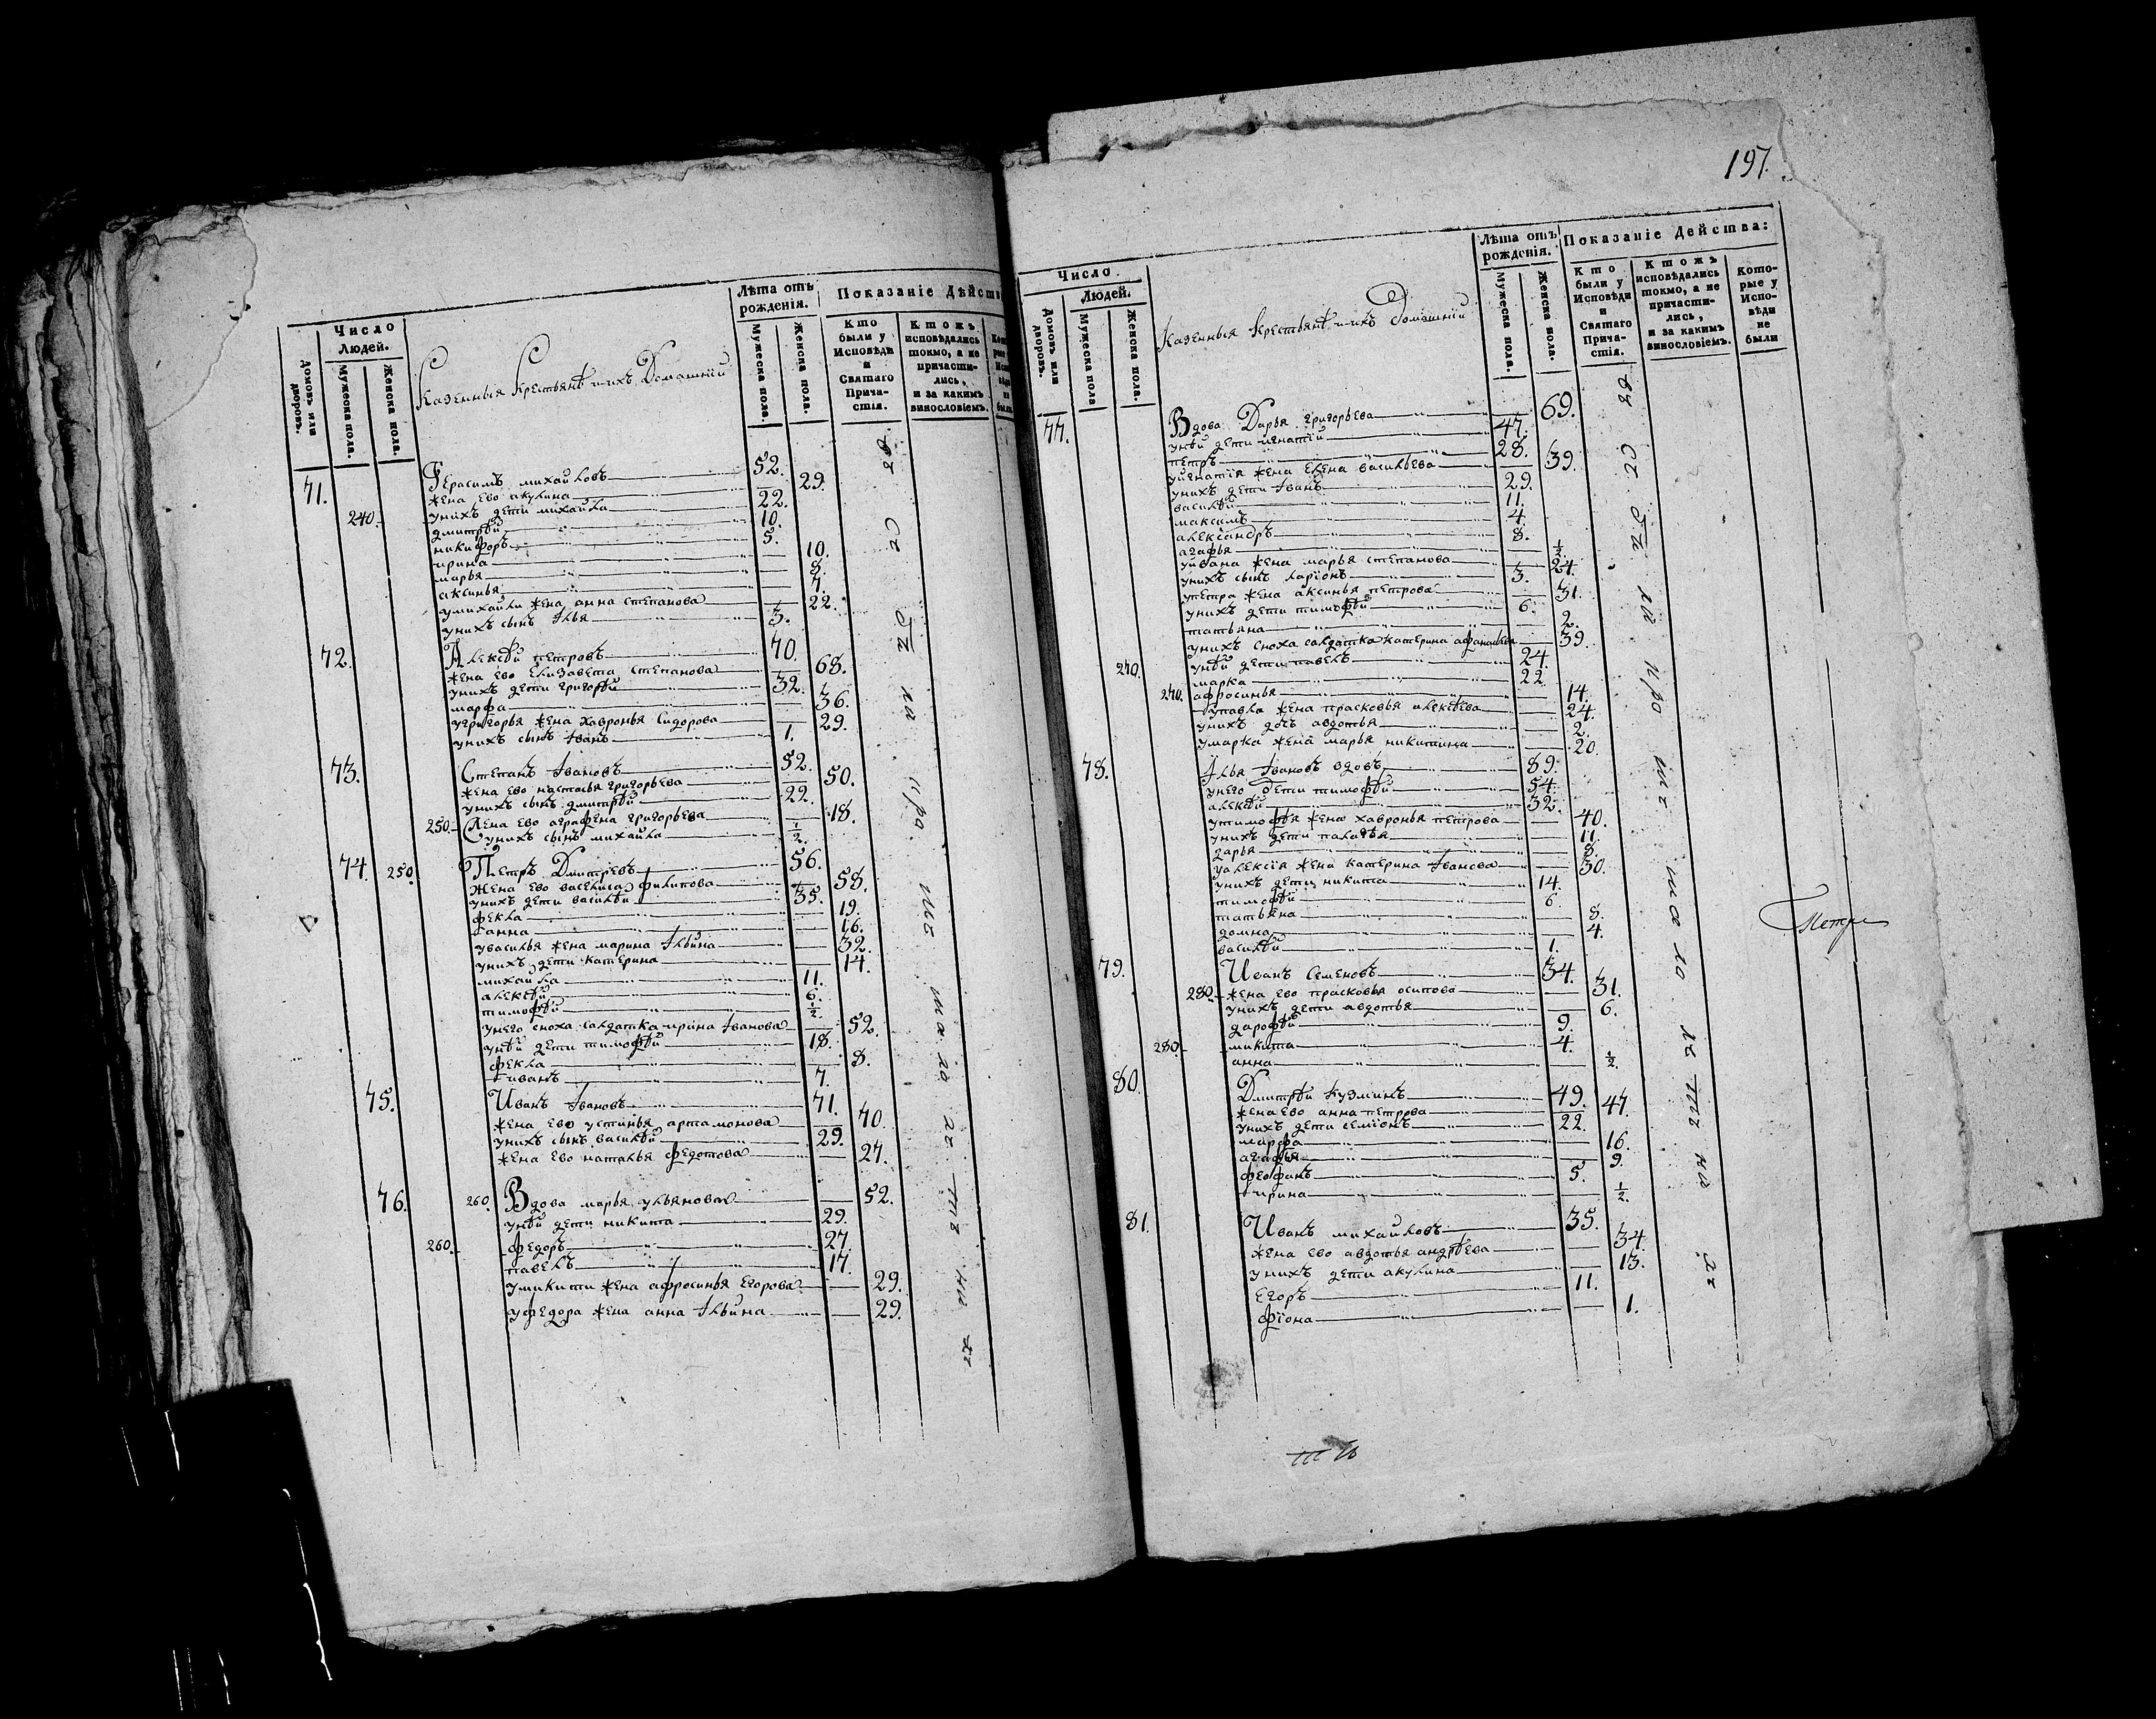 Число
Людей.
Лѣта отъ
рожденія.
Показаніе Дѣйств
Домовъ или
дворовъ.
Мужеска пола.
Женска пола.
Казенныя Крестьянѣ и ихъ Домашнии
Мужеска пола.
Женска пола.
Кто
были у
Исповѣди
и
Святаго
Прича-
стія.
Ктожъ
исповѣдались
токмо, а не
причасти-
лись,
и за какимъ
винословіемъ.
71. Герасимъ михайловъ 52.
жена ево акулина 29.
240. унихъ дети михайла 22.
дмитрѣй 10.
никифоръ 5.
ирина 10.
марья 8.
аксинья 7.
умихайлы жена анна степанова 22.
унихъ сынъ Илья 3.
72. Алексѣй петровъ 70.
жена ево Елизавета степанова 68.
унихъ дети григорѣй 32.
марфа 36.
угригорья жена хавронья Сидорова 29.
унихъ сынъ Іванъ 1.
73. Степанъ Івановъ 52.
жена ево настасья григорьева 50.
унихъ сынъ дмитрѣй 22.
250. жена ево аграфена григорьева 18.
унихъ сынъ михайла ½.
74. 250. Петръ Дмитревъ 56.
Жена ево василиса филипова 58.
унихъ дети василѣй 35.
фекла 19.
анна 16.
увасилья жена марина Ільина 32.
унихъ дети катерина 14.
михайла 11.
алексѣй 6.
тимофѣй ½.
унего сноха салдатка ирина Іванова 52.
унѣй дети тимофѣй 18.
фекла 8.
иванъ 7.
75. Иванъ Івановъ 71.
жена ево устинья артамонова 70.
унихъ сынъ василѣй 29.
жена ево наталья федотова 27.
76. 260. Вдова марья ульянова 52.
унѣй дети никита 29.
260. федоръ 27.
павелъ 17.
уникиты жена афросинья Егорова 29.
уфедора жена анна Ільина 29.
197.
Число
Людей.
Лѣта отъ
рожденія.
Показаніе Дейсmва:
Домовъ или
дворовъ.
Мужеска пола
Женска пола.
Казенныя Крестьянѣ и ихъ Домашнии
Мужеска пола.
Женска пола.
Кто
были у
Исповѣди
и
Святаго
Прича-
стія.
Ктожъ
исповѣдались
токмо, а не
причасти-
лись,
и за какимъ
винословіемъ.
Кото-
рые у
Испо-
вѣди
не
были
77. Вдова Дарья григорьева 69.
унѣй дети игнатѣй 47.
петръ 28.
уигнатія жена Елена васильева 39.
унихъ дети Іванъ 29.
василѣй 11.
максимъ 4.
александръ 8.
агафья ½.
уивана жена марья степанова 24.
унихъ сынъ ларіонъ 3.
упетра жена аксинья петрова 31.
унихъ дети тимофѣй 6.
татьяна 2.
унихъ сноха салдатка катерина афанасьева 39.
унѣй дети павелъ 24.
270. марка 22.
270. афросинья 14.
упавла жена прасковья алексѣева 24.
унихъ дочь авдотья 2.
умарка жена марья никитина 20.
78. Ілья Івановъ вдовъ 89.
унего дети тимофѣй 54.
алексѣй 32.
утимофѣя жена хавронья петрова 40.
унихъ дети палагѣя 11.
дарья 8.
уалексія жена катерина Іванова 30.
унихъ дети никита 14.
тимофѣй 6.
татьяна 8.
домна 4.
василѣй 1.
79. Иванъ Семеновъ 34.
280. жена ево прасковья осипова 31.
унихъ дети авдотья 6.
дарофѣй 9.
280. микита 4.
анна ½.
80. Дмитрѣй Кузминъ 49.
жена ево анна петрова 47.
унихъ дети семіонъ 22.
марфа 16.
агафья 9.
феофанъ 5.
ирина ½.
81. Иванъ михайловъ 35.
жена ево авдотья андрѣева 34.
унихъ дети акулина 13.
Егоръ 11.
фіона 1.